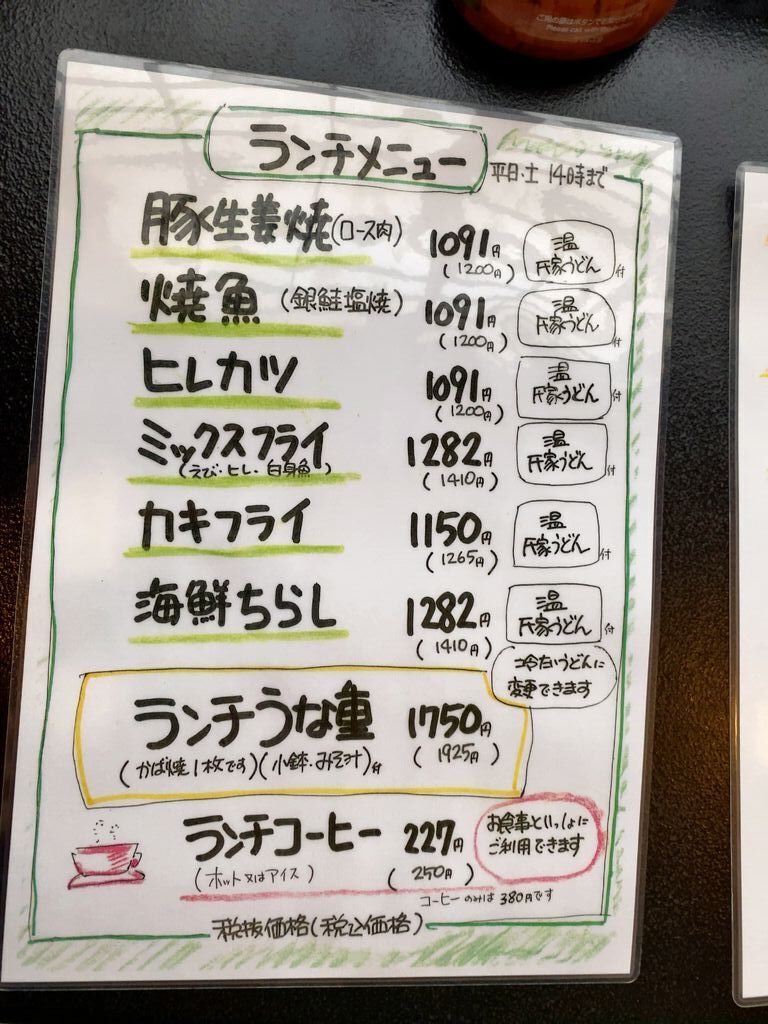 ご用の節はボタンでお知らせ
Please call with the
ランチメニュー
平日・土 14時まで
豚生姜焼(ロース肉) 1091円 温
(1200円) 氏家うどん 付
焼魚 (銀鮭塩焼) 1091円 温
(1200円) 氏家うどん 付
ヒレカツ 1091円 温
(1200円) 氏家うどん 付
ミックスフライ 1282円 温
(えび・ヒレ・白身魚) (1410円) 氏家うどん 付
カキフライ 1150円 温
(1265円) 氏家うどん 付
海鮮ちらし 1282円 温
(1410円) 氏家うどん 付
冷たいうどんに
変更できます
ランチうな重 1750円
(かば焼1枚です)(小鉢・みそ汁)付 (1925円)
ランチコーヒー 227円
(ホット又はアイス) (250円)
お食事といっしょに
ご利用できます
コーヒーのみは 380円です
税抜価格(税込価格)